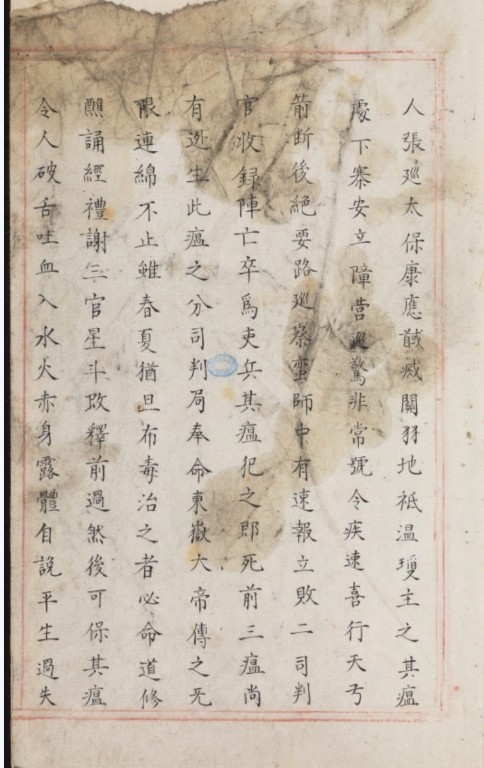 人張巡太保康應馘滅關羽地祇溫瓊主之其瘟
處下寨安立障營巡驚非常號令疾速喜行天弓
箭断後絕要路巡察蛮師中有速報立敗二司判
官收録陣亡卒爲吏兵其瘟犯之即死前三瘟尚
有逃生此瘟之分司判局奉命東嶽大帝傳之无
限連綿不止雖春夏猶旦布毒治之者必命道修
醮誦經禮謝三官星斗改釋前過然後可保其瘟
令人破舌吐血入水火赤身露體自說平生過失